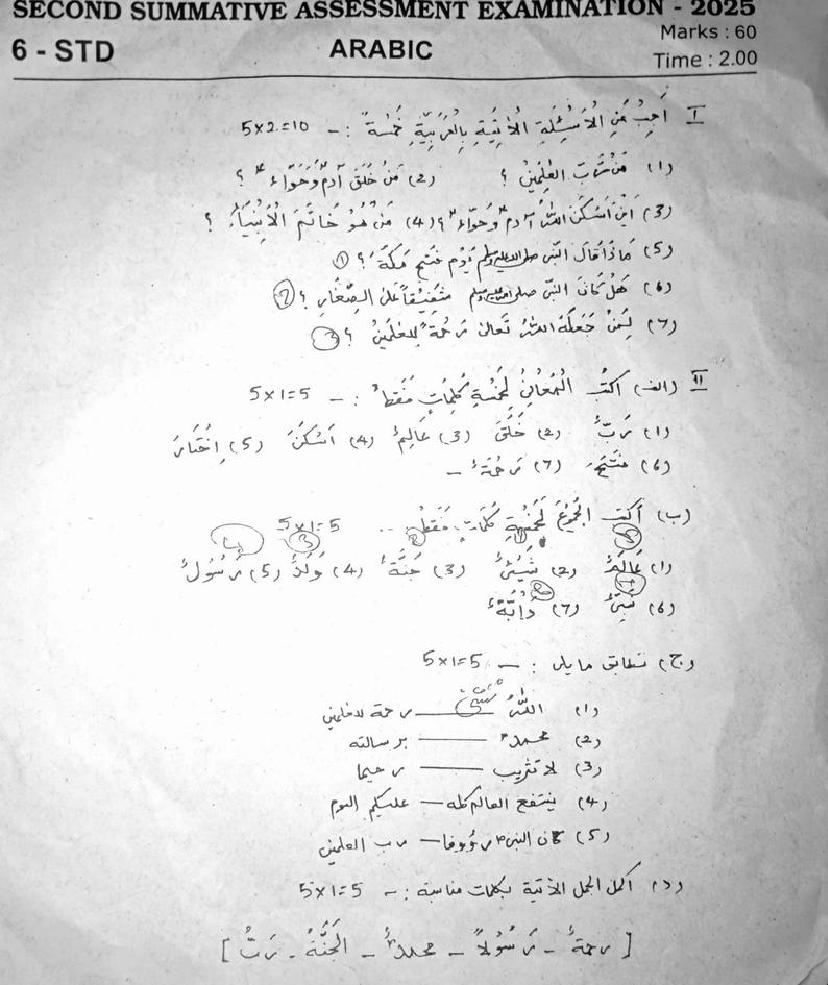 SECOND SUMMATIVE ASSESSMENT EXAMINATION - 2025
6 - STD ARABIC Marks : 60
Time : 2.00
I أَجِبْ عَنِ الْأَسْئِلَةِ الْأٰتِيَةِ بِالْعَرَبِيَّةِ خَمْسَةً :- 5×2=10
(1) مَنْ رَبُّ الْعٰلَمِيْنَ ؟ (2) مَنْ خَلَقَ آدَمَ وَحَوَّاءَ ؟
(3) اَيْنَ اَسْكَنَ اللّٰهُ آدَمَ وَحَوَّاءَ ؟ (4) مَنْ هُوَ خَاتَمُ الْأَنْبِيَاءِ ؟
(5) مَاذَا قَالَ النَّبِىُّ صلى الله عليه وسلم يَوْمَ فَتْحِ مَكَّةَ ؟ ①
(6) هَلْ كَانَ النَّبِىُّ صلى الله عليه وسلم شَفِيْقًا عَلَى الصِّغَارِ ؟ ②
(7) لِمَنْ جَعَلَهُ اللّٰهُ تَعَالٰى رَحْمَةً لِلْعٰلَمِيْنَ ؟ ③
II (الف) اكْتُبْ الْمَعَانِىْ لِخَمْسَةِ كَلِمَاتٍ فَقَطْ :- 5×1=5
(1) رَبٌّ (2) خَلَقَ (3) عَالَمٌ (4) اَسْكَنَ (5) اِخْتَارَ
(6) فَتَحَ (7) رَحْمَةٌ -
(ب) اُكْتُبْ الْجُمُوْعَ لِخَمْسَةِ كَلِمَاتٍ فَقَطْ .. 5×1=5
(1) عَالَمٌ (2) شَيْئٌ (3) جَنَّةٌ (4) وَلَدٌ (5) رَسُوْلٌ
(6) نَبِىٌّ (7) دَابَّةٌ
(ج) تطابق ما يلى :- 5×1=5
(1) اللّٰهُ — رحمة للعلمين
(2) محمدٌ — برسالته
(3) لا تثريب — رحيما
(4) ينتفع العالم كله — عليكم اليوم
(5) كان النبى ص رؤوفا — رب العلمين
(د) اكمل الجمل الأتية بكلمات مناسبة :- 5×1=5
[ رحمةٌ - رَسُوْلاً - محمدٌ - الْجَنَّةُ - رَبُّ ]